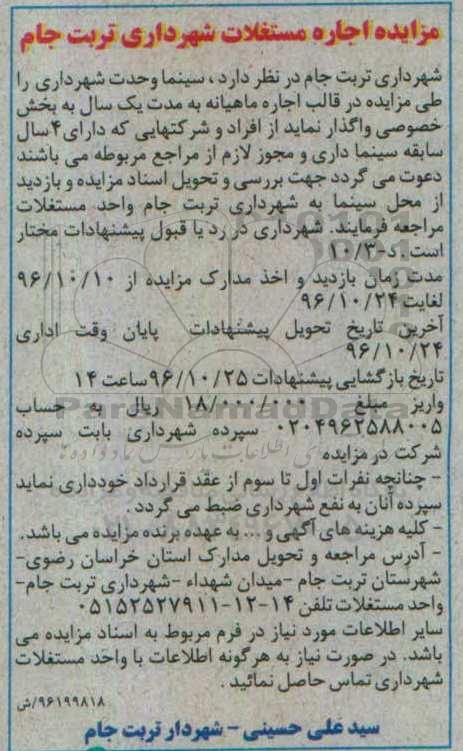 مزایده اجاره مستغلات شهرداری تربت جام
شهرداری تربت جام در نظر دارد، سینما وحدت شهرداری را
طی مزایده در قالب اجاره ماهیانه به مدت یک سال به بخش
خصوصی واگذار نماید از افراد و شرکتهایی که دارای ۴ سال
سابقه سینما داری و مجوز لازم از مراجع مربوطه می باشند
دعوت می گردد جهت بررسی و تحویل اسناد مزایده و بازدید
از محل سینما به شهرداری تربت جام واحد مستغلات
مراجعه فرمایند. شهرداری در رد یا قبول پیشنهادات مختار
است. د-۱۰/۳
مدت زمان بازدید و اخذ مدارک مزایده از ۹۶/۱۰/۱۰
لغایت ۹۶/۱۰/۲۴
آخرین تاریخ تحویل پیشنهادات پایان وقت اداری
۹۶/۱۰/۲۴
تاریخ بازگشایی پیشنهادات ۹۶/۱۰/۲۵ ساعت ۱۴
واریز مبلغ ۱۸/۰۰۰/۰۰۰ ریال به حساب
۰۲۰۴۹۶۲۵۸۸۰۰۵ سپرده شهرداری بابت سپرده
شرکت در مزایده
- چنانچه نفرات اول تا سوم از عقد قرارداد خودداری نماید
سپرده آنان به نفع شهرداری ضبط می گردد.
- کلیه هزینه های آگهی و ... به عهده برنده مزایده می باشد.
- آدرس مراجعه و تحویل مدارک استان خراسان رضوی-
شهرستان تربت جام -میدان شهداء -شهرداری تربت جام-
واحد مستغلات تلفن ۱۴-۱۲-۰۵۱۵۲۵۲۷۹۱۱
سایر اطلاعات مورد نیاز در فرم مربوط به اسناد مزایده می
باشد. در صورت نیاز به هرگونه اطلاعات با واحد مستغلات
شهرداری تماس حاصل نمائید.
۹۶۱۹۹۸۱۸/ش
سید علی حسینی - شهردار تربت جام
ParsNamadData